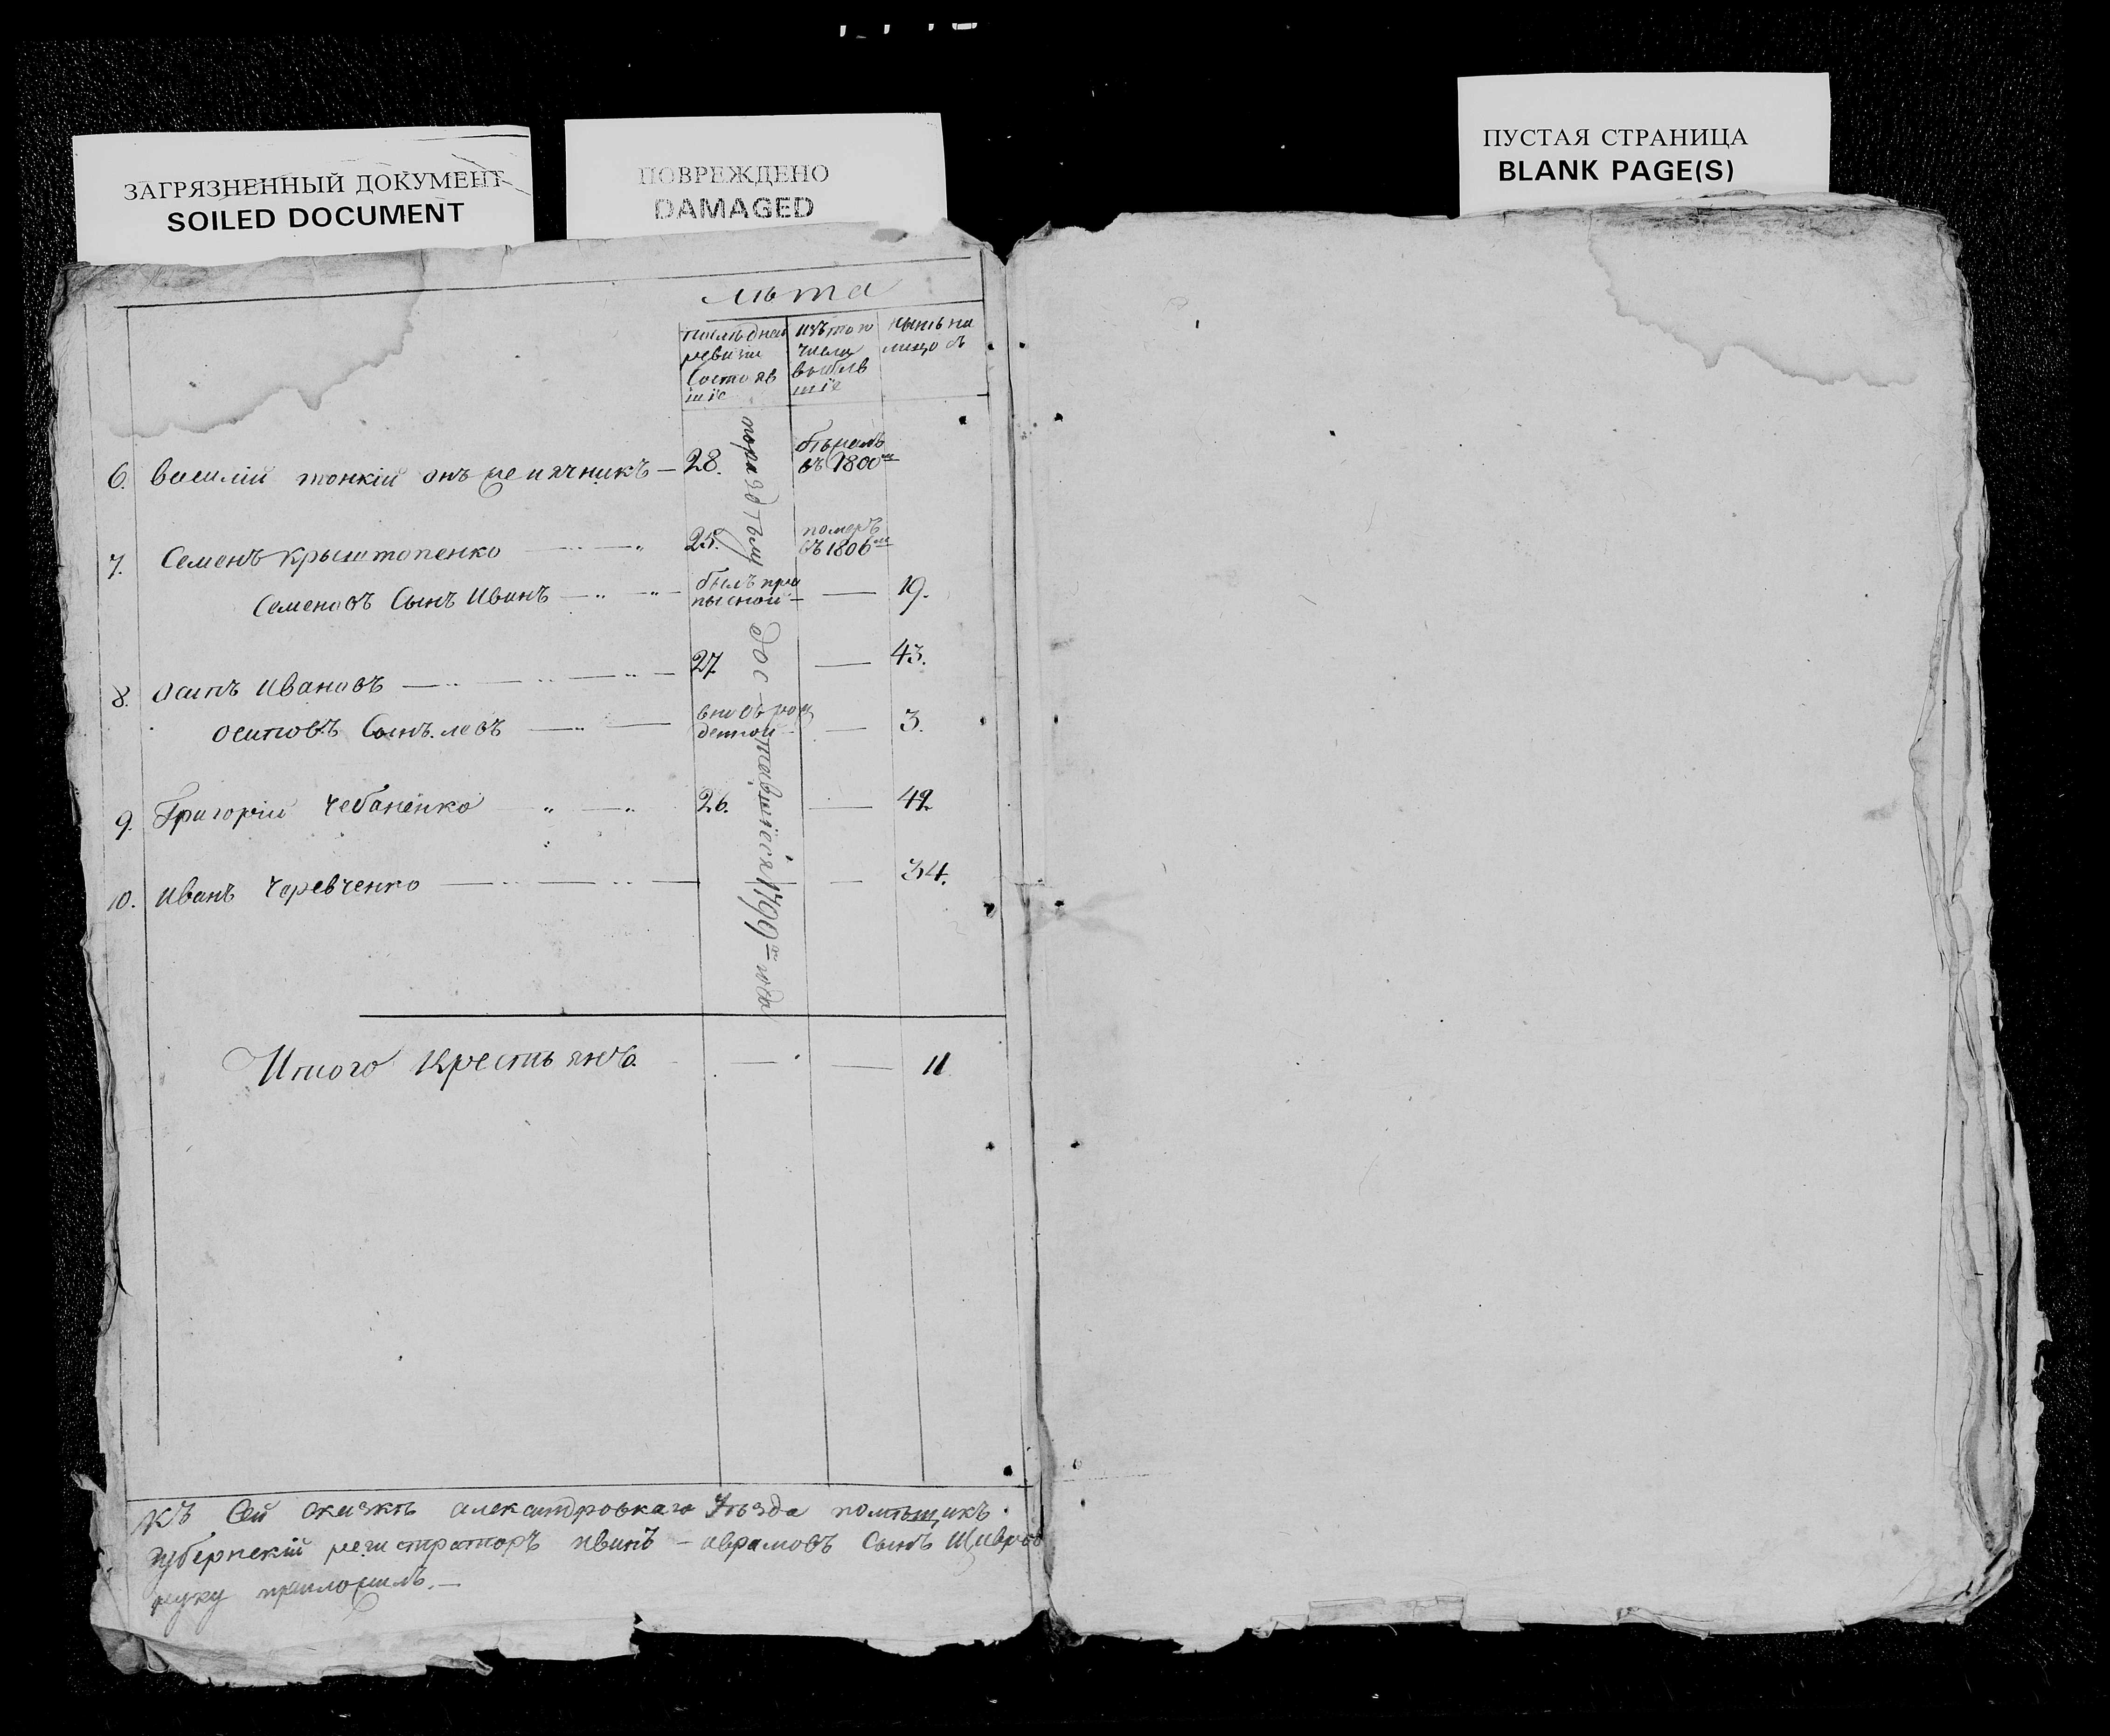 ЗАГРЯЗНЕННЫЙ ДОКУМЕНТ
SOILED DOCUMENT
ПОВРЕЖДЕНО
DAMAGED
ПУСТАЯ СТРАНИЦА
BLANK PAGE(S)
лѣта
последней
ревизи
состояв
шіе
изъ того
числа
выбыв
шіе
нынѣ на
лицо
6. василій тонкій онъ же 28. бѣжалъ
въ 1800
7. Семенъ Крыштопенко 25. померъ
въ 1806
Семеновъ Сынъ Иванъ былъ про
писной 19.
8. осипъ Ивановъ 27 43.
осиповъ Сынъ левъ вновь рож
денной 3.
9. Григорій Чебаненко 26. 42
10. Иванъ Черевченко 34.
по раздѣлу доставшіеся 1799
Итого крестьянъ. 11
Къ Сей сказкѣ александровкаго уѣзда помѣщикъ
губернскій регистраторъ иванъ аврамовъ Сынъ
руку приложилъ.